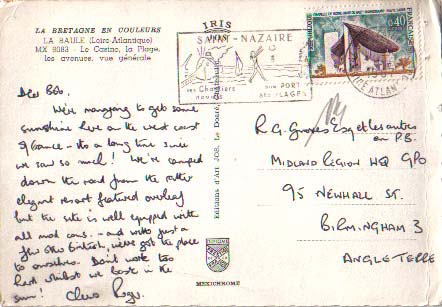 LA BRETAGNE EN COULEURS
LA BAULE (Loire-Atlantique)
MX 9083 - Le Casino, la Plage,
les avenues, vue générale
IRIS
SAINT-NAZAIRE
ses Chantiers
navals
son PORT
ses PLAGES
0,40
FRANÇAISE
LOIRE ATLAN
Dear Bob.
We're managing to get some
sunshine here on the west coast
of France - its a long time since
we saw so much! We're camped
down the road from the rather
elegant resort featured overleaf
but the site is well equipped with
all mod cons. - and with just a
few other British, we've got the place
to ourselves. Don't work too
hard whilst we bask in the
sun! Cheers Roger.
Editions d'Art JOS, Le Doaré, Châteaulin
MEXICHROME
R.G. Esq et les autres
en P.B.
MIDLAND REGION HQ GPO
95 NEWHALL ST.
BIRMINGHAM 3
ANGLETERRE